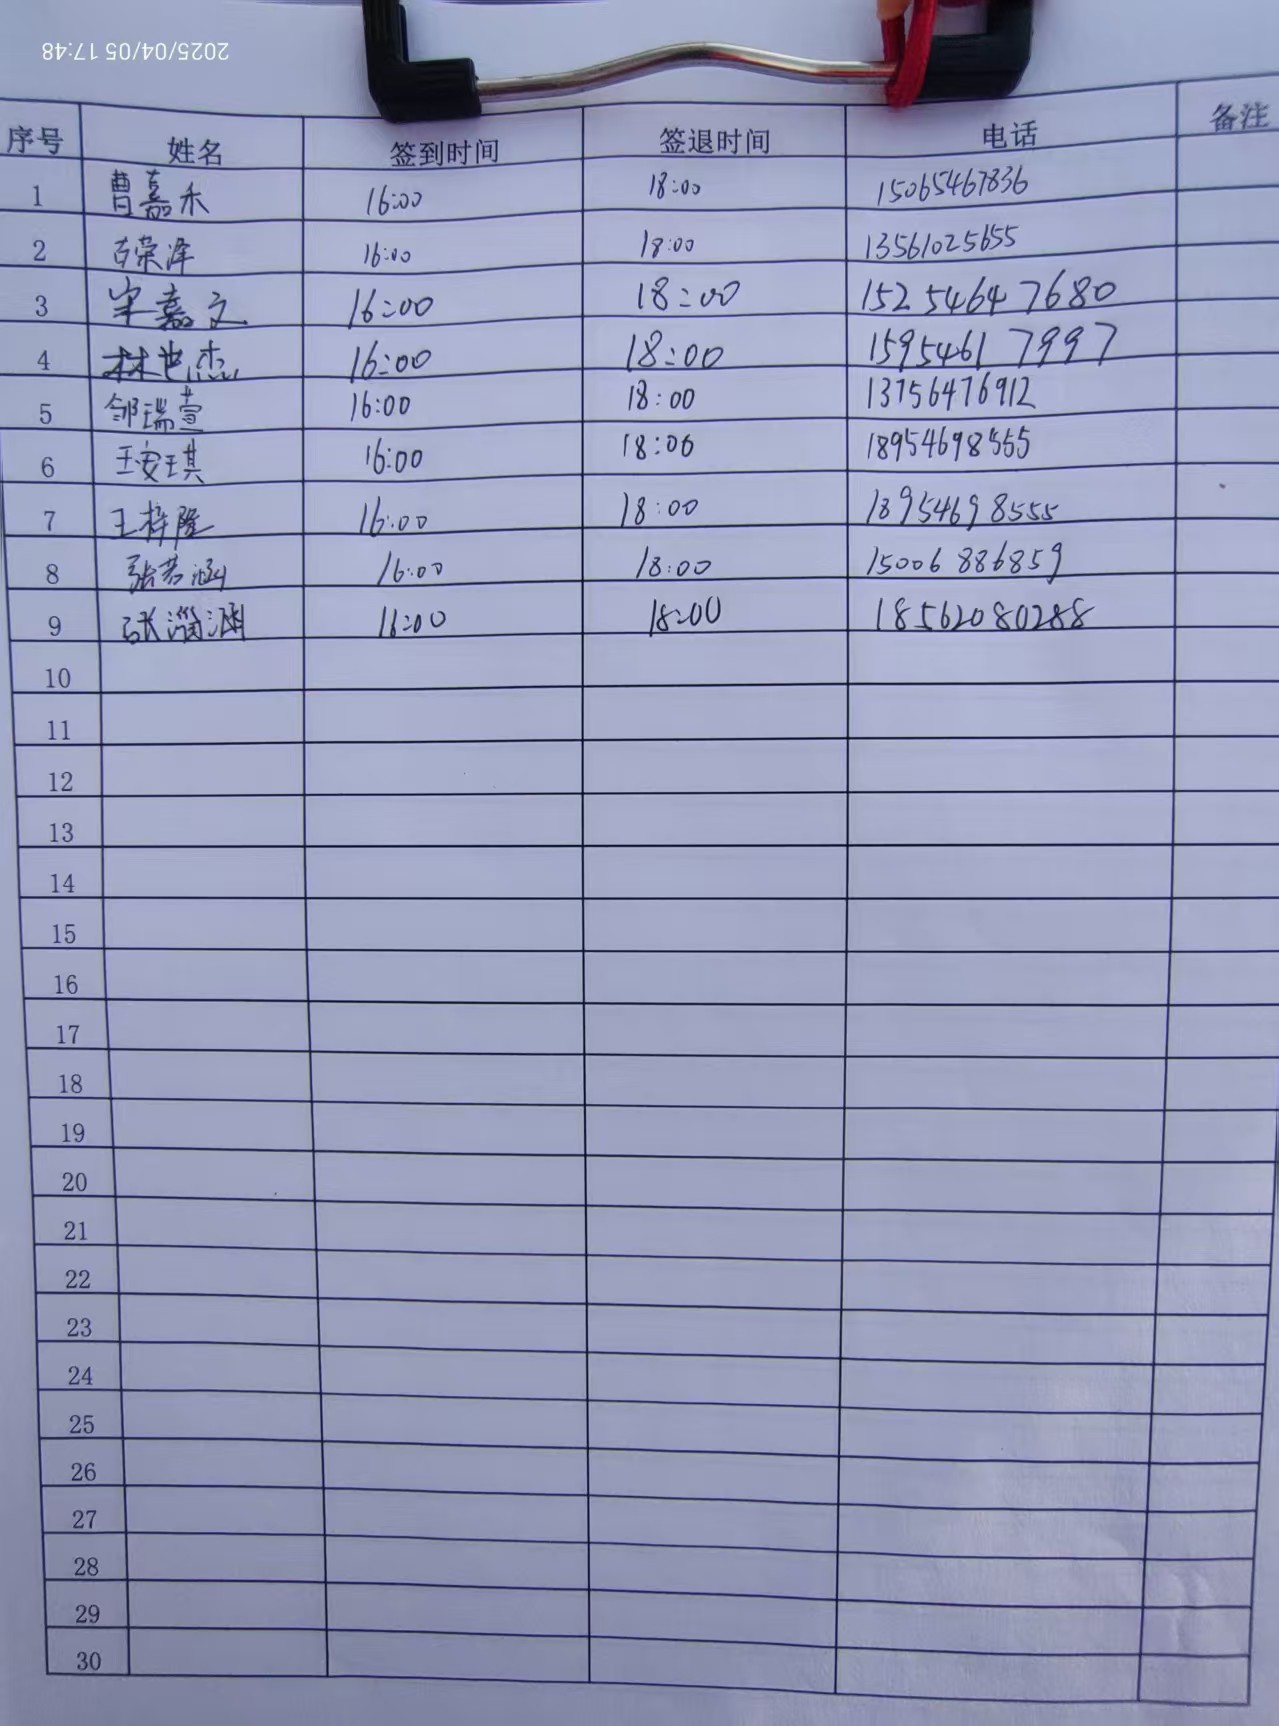 2025/04/05 17:48
序号 姓名 签到时间 签退时间 电话 备注
1 曹嘉禾 16:00 18:00 15065467836
2 荣泽 16:00 18:00 13561025655
3 宋嘉文 16:00 18:00 15254647680
4 林也杰 16:00 18:00 15954617997
5 邹瑞萱 16:00 18:00 13756476912
6 王安琪 16:00 18:00 18954698555
7 王梓隆 16:00 18:00 18954698555
8 张若涵 16:00 18:00 15006886859
9 张淄涵 16:00 18:00 18562080288
10
11
12
13
14
15
16
17
18
19
20
21
22
23
24
25
26
27
28
29
30